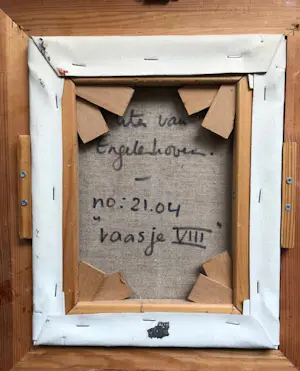 van
Engelenhoven.
–
no: 21.04
"Vaasje VIII"